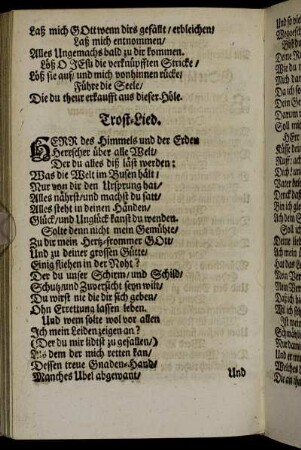 Laß mich GOtt wenn dirs gefällt/ erbleichen/
Laß mich entnommen/
Alles Ungemachs bald zu dir kommen.
Löß O JEsu die verknüpfften Stricke/
Löß sie auf/ und mich vonhinnen rücke/
Führe die Seele/
Die du theur erkaufft aus dieser Höle.
Trost-Lied.
HERR des Himmels und der Erden
Herrscher über alle Welt/
Der du alles läst werden:
Was die Welt im Busen hält/
Nur von dir den Ursprung hat/
Alles nährst/ und machst du satt/
Alles steht in deinen Händen/
Glück/ und Unglück kanst du wenden.
Solte denn nicht mein Gemühte/
Zu dir mein Hertz-frommer GOtt/
Und zu deiner grossen Gütte/
Einig fliehen in der Noht?
Der du unser Schirm/ und Schild/
Schutz und Zuversicht seyn wilt/
Du wirst nie die dir sich geben/
Ohn Errettung lassen leben.
Und wem solte wol vor allen
Ich mein Leiden zeigen an?
(Der du mir thust zu gefallen/)
Als dem der mich retten kan/
Dessen treue Gnaden-Hand/
Manches Ubel abgewant/
Und